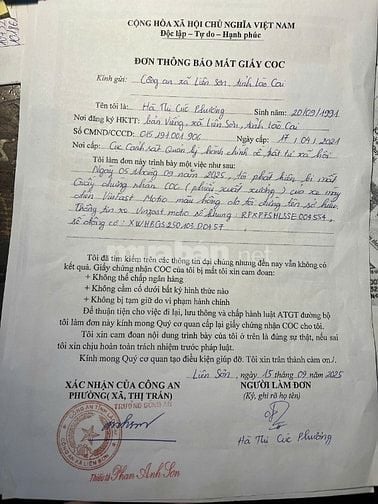 CỘNG HÒA XÃ HỘI CHỦ NGHĨA VIỆT NAM
Độc lập – Tự do – Hạnh phúc
ĐƠN THÔNG BÁO MẤT GIẤY COC
Kính gửi: Công an xã Liên Sơn, tỉnh Lào Cai
Tên tôi là: Hà Thị Cúc Phương Sinh năm: 20/09/1991
Nơi đăng ký HKTT: bản Vừng, xã Liên Sơn, tỉnh Lào Cai
Số CMND/CCCD: 015191001906 Ngày cấp: 17/04/2021
Nơi cấp: Cục Cảnh sát Quản lý hành chính về trật tự xã hội
Tôi làm đơn này trình bày một việc như sau:
Ngày 05 tháng 09 năm 2025, tôi phát hiện bị mất
Giấy chứng nhận COC (phiếu xuất xưởng) của xe máy
điện Vinfast Motio màu hồng do tôi đứng tên sở hữu.
Thông tin xe Vinfast motio số khung: RPXPFSHLSSE001554,
số động cơ: XWHBGS250103D0157
Tôi đã tìm kiếm trên các thông tin đại chúng nhưng đến nay vẫn không có
kết quả. Giấy chứng nhận COC của tôi bị mất tôi xin cam đoan:
+ Không thế chấp ngân hàng
+ Không cầm cố dưới bất kỳ hình thức nào
+ Không bị tạm giữ do vi phạm hành chính
Để thuận tiện cho việc đi lại, lưu thông và chấp hành luật ATGT đường bộ
tôi làm đơn này kính mong Quý cơ quan cấp lại giấy chứng nhận COC cho tôi.
Tôi xin cam đoan nội dung trình bày của tôi ở trên là đúng sự thật, nếu sai
tôi xin chịu hoàn toàn trách nhiệm trước pháp luật.
Kính mong Quý cơ quan tạo điều kiện giúp đỡ. Tôi xin trân thành cảm ơn./.
Liên Sơn, ngày 15 tháng 09 năm 2025
XÁC NHẬN CỦA CÔNG AN
PHƯỜNG( XÃ, THỊ TRẤN)
NGƯỜI LÀM ĐƠN
(Ký, ghi rõ họ tên)
Hà Thị Cúc Phương
Thiếu tá Phan Anh Sơn